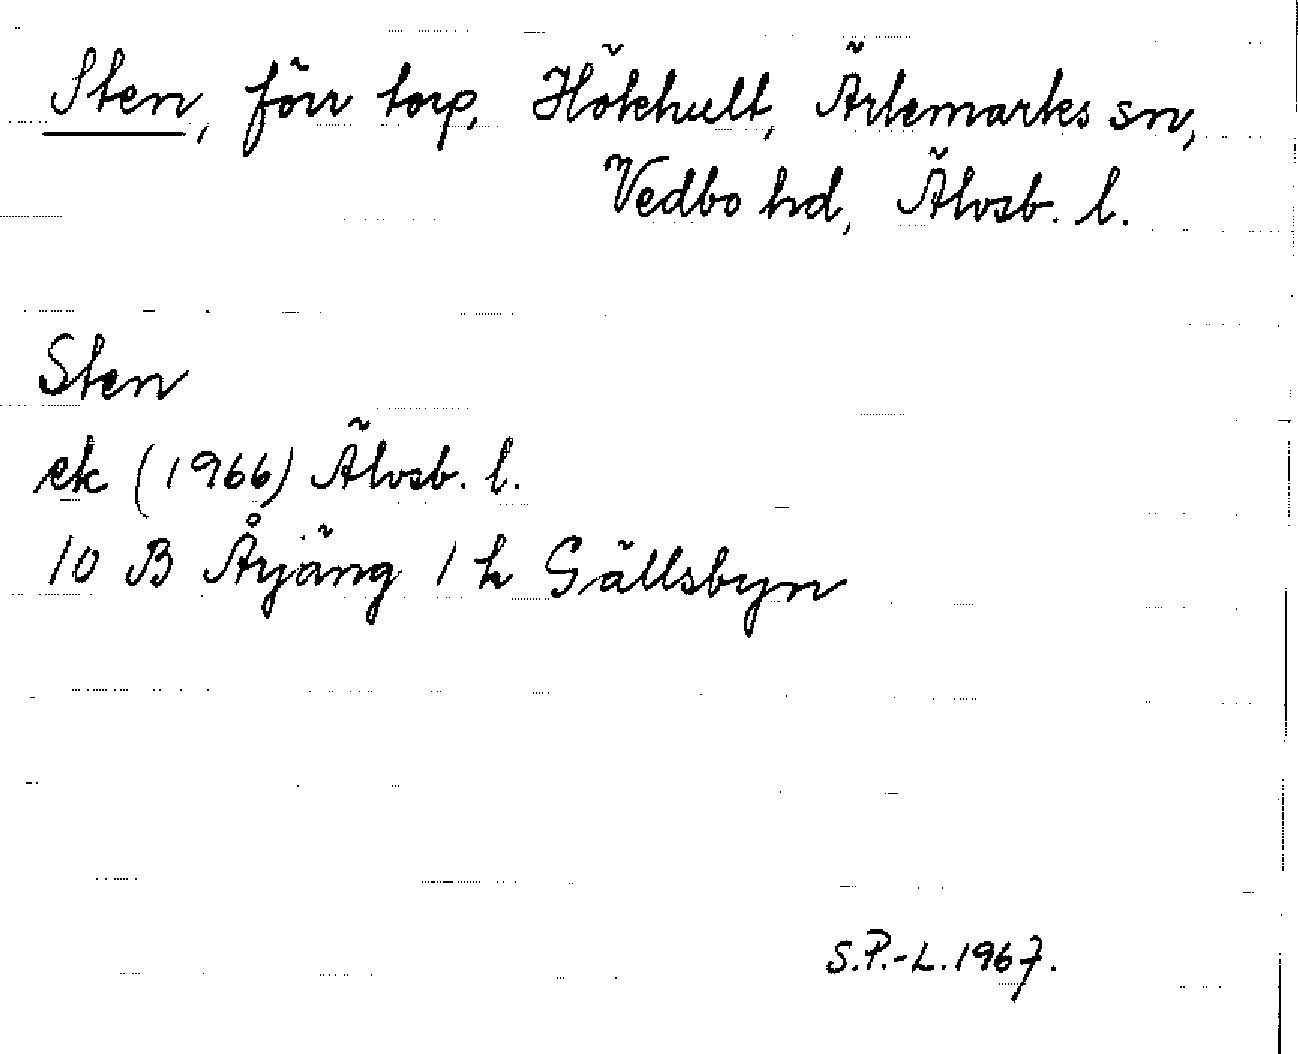 Sten, förr torp, Hökhult, Ärtemarks sn,
Vedbo hd, Älvsb. l.
Sten
ek (1966) Älvsb. l.
10 B Årjäng 1 h Gällsbyn
S.P.-L. 1967.